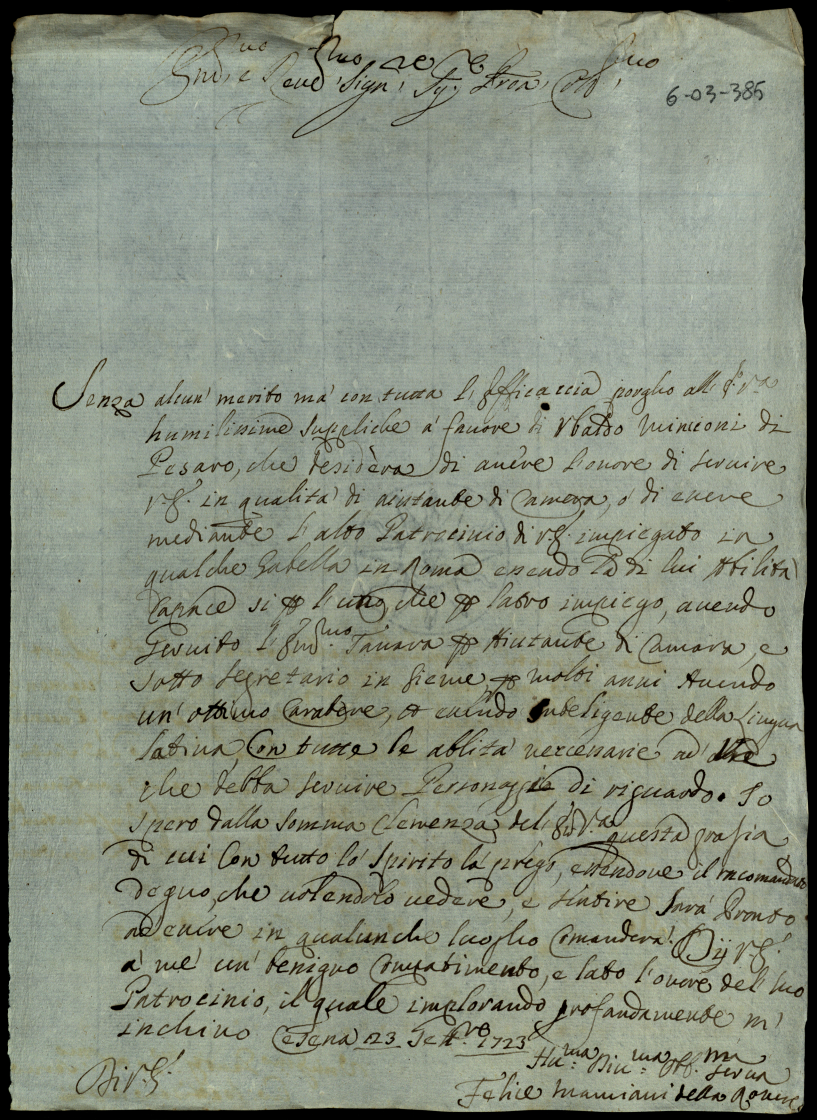 Em.mo e Rev.mo Sign.re Sig.re Pron. Col.mo
6-03-385
Senza alcun' merito mà con tutta l'efficaccia porgho all' E.V.ra
humilissime suppliche à favore di Vbaldo Minieoni di
Pesaro, che desidèra di avere l'onore di servire
V.E. in qualità di aiutante di Camera, ò di essere
mediante l'alto Patrocinio di V.E. impiegato in
qualche Gabella in Roma essendo la di lui Abilità
Capace si per l'uno, che per l'altro impiego, avendo
servito l'Em.mo Tanara per Aiutante di Camara, e
sotto segretario in sieme per molti anni Avendo
un' ottimo Caratere, et essendo intelligente della Lingua
latina, Con tutte le abilità necessarie ad
che debba servire Personaggi di riguardo. Io
spero dalla somma Clemenza del Em.za questa grazia
di cui Con tutto lo Spirito la prego, essendone il racomandato
degno, che volendolo vedere, e sentire sarà Pronto
ad essere in qualunche luogho Comanderà. V.E.
à me un' benigno Compatimento, e lato l'onore del suo
Patrocinio, il quale implorando profondamente m'
inchino Cesena 23 Sett.re 1723
Di V.E.
Hu.ma Div.ma Obb.ma Serva
Felice Mamiani della Rovere